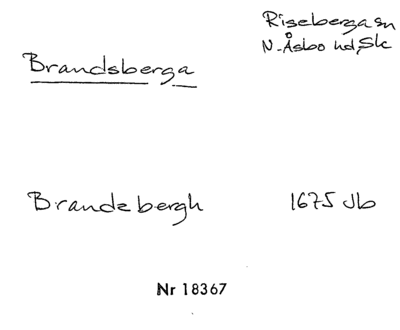 Riseberga sn
N. Åsbo hd, Sk
Brandsberga
Brandzbergh 1675 Jb
Nr 18367